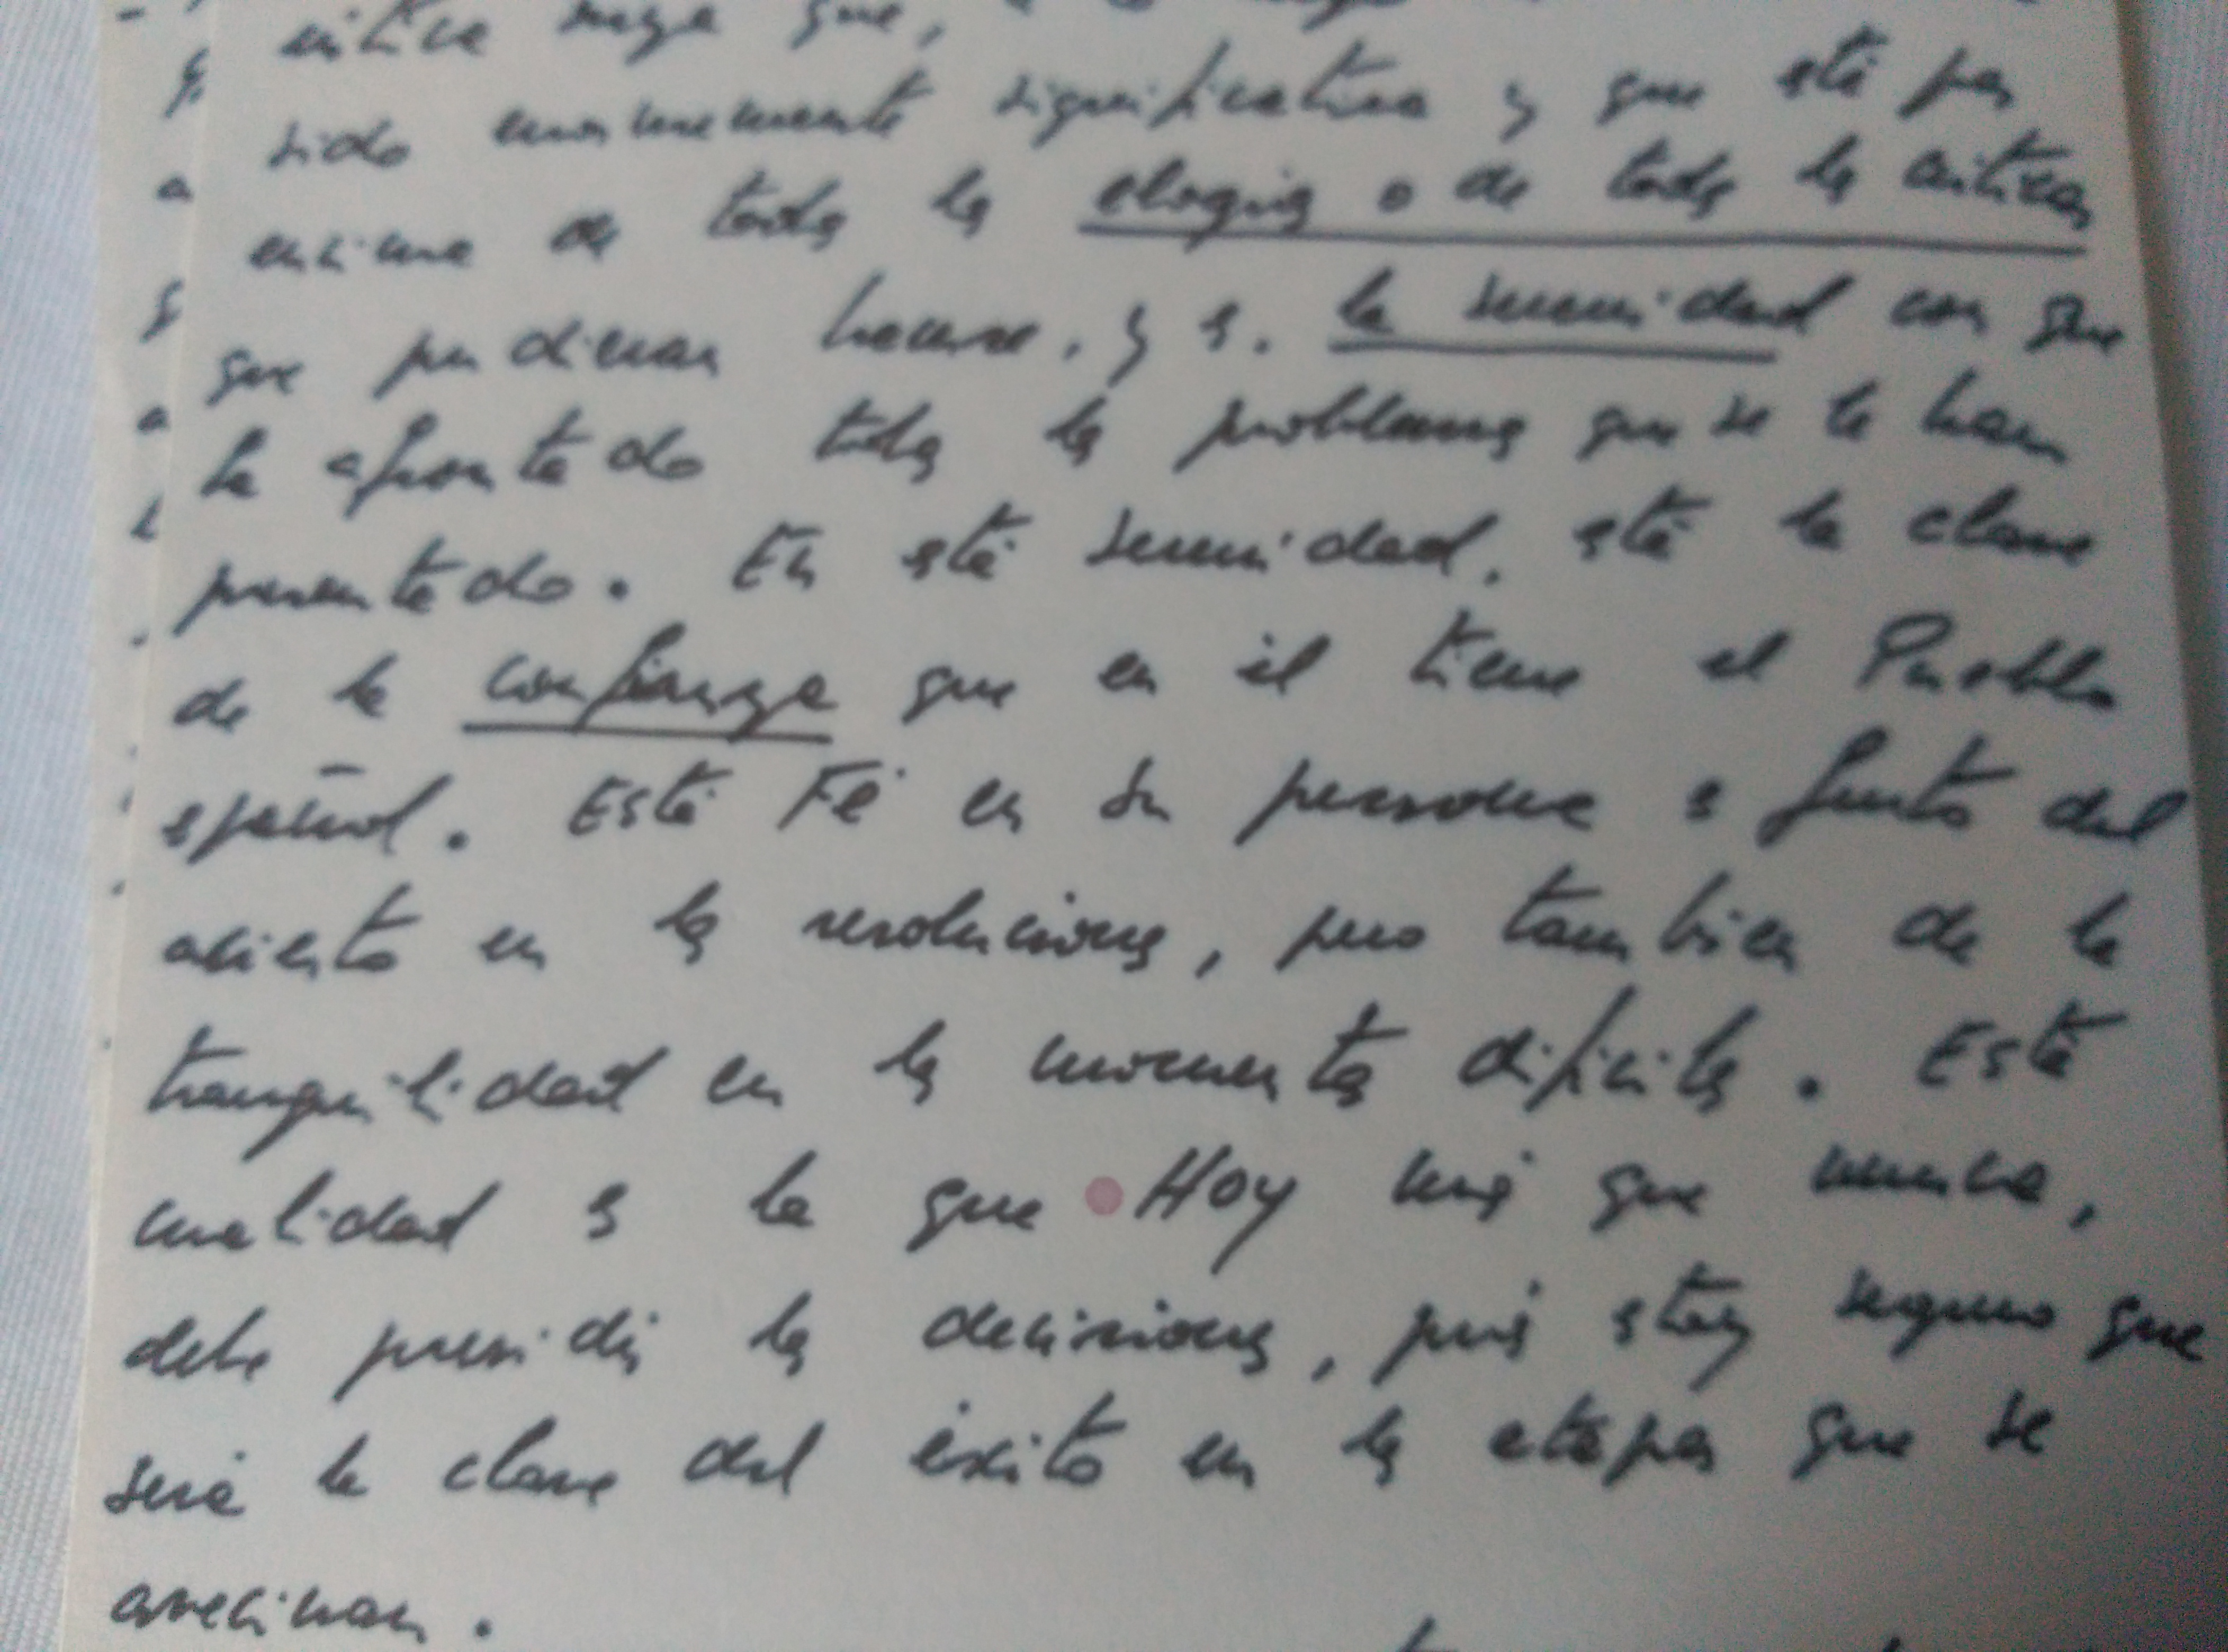 crítica niega que,
sido enormemente significativa y que está por
encima de todos los elogios o de todas las críticas
que pudieran hacerse, y es. la serenidad con que
ha afrontado todos los problemas que se le han
presentado. En está serenidad, está la clave
de la confianza que en él tiene el Pueblo
español. Está Fé en su persona es fruto del
acierto en las resoluciones, pero tambien de la
tranquilidad en los momentos dificiles. Está
cualidad es la que Hoy más que nunca,
debe presidir las decisiones, pués estoy seguro que
será la clave del éxito en las etapas que se
avecinan.